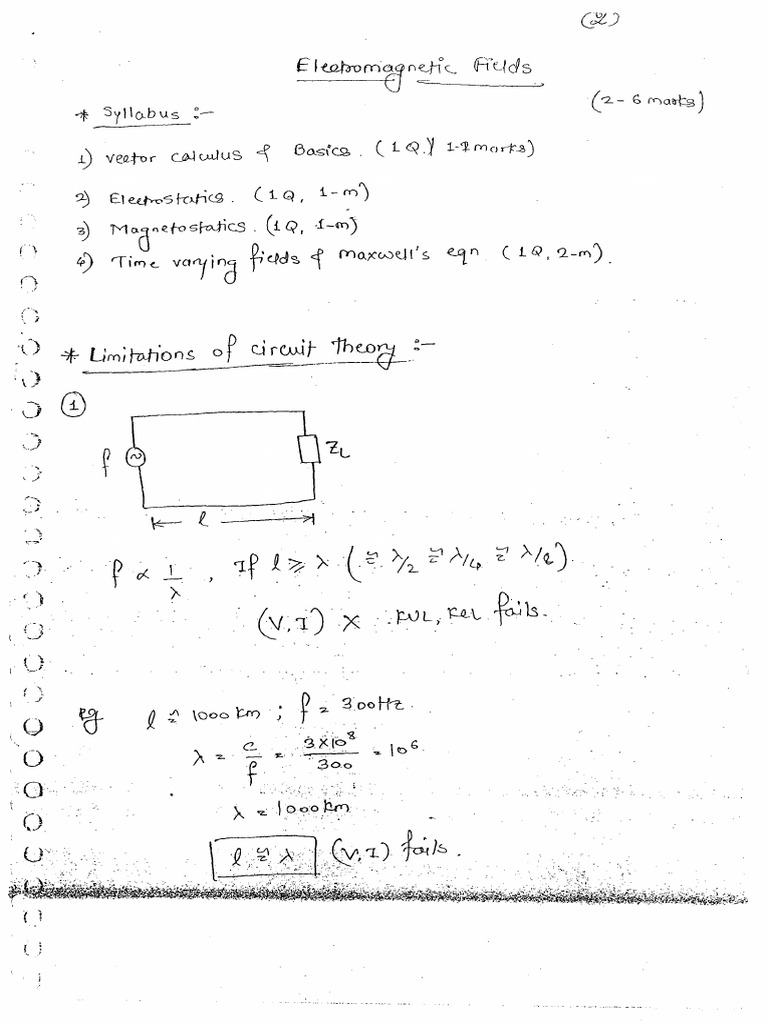 (2)
Electromagnetic Fields
(2 - 6 marks)
* Syllabus :-
1) Vector calculus & Basics. (1Q,/ 1-2 marks)
2) Electrostatics. (1Q, 1-m)
3) Magnetostatics. (1Q, 1-m)
4) Time varying fields & maxwell's eqn. (1Q, 2-m).
* Limitations of circuit Theory :-
1
f
ZL
l
f ∝ 1/λ , If l ≥ λ (≈ λ/2 ≈ λ/4 ≈ λ/8).
(V, I) X KVL, KCL fails.
eg l ≈ 1000 km ; f = 300Hz.
λ = c/f = 3×10⁸/300 = 10⁶
λ = 1000 km
l ≈ λ (V, I) fails.